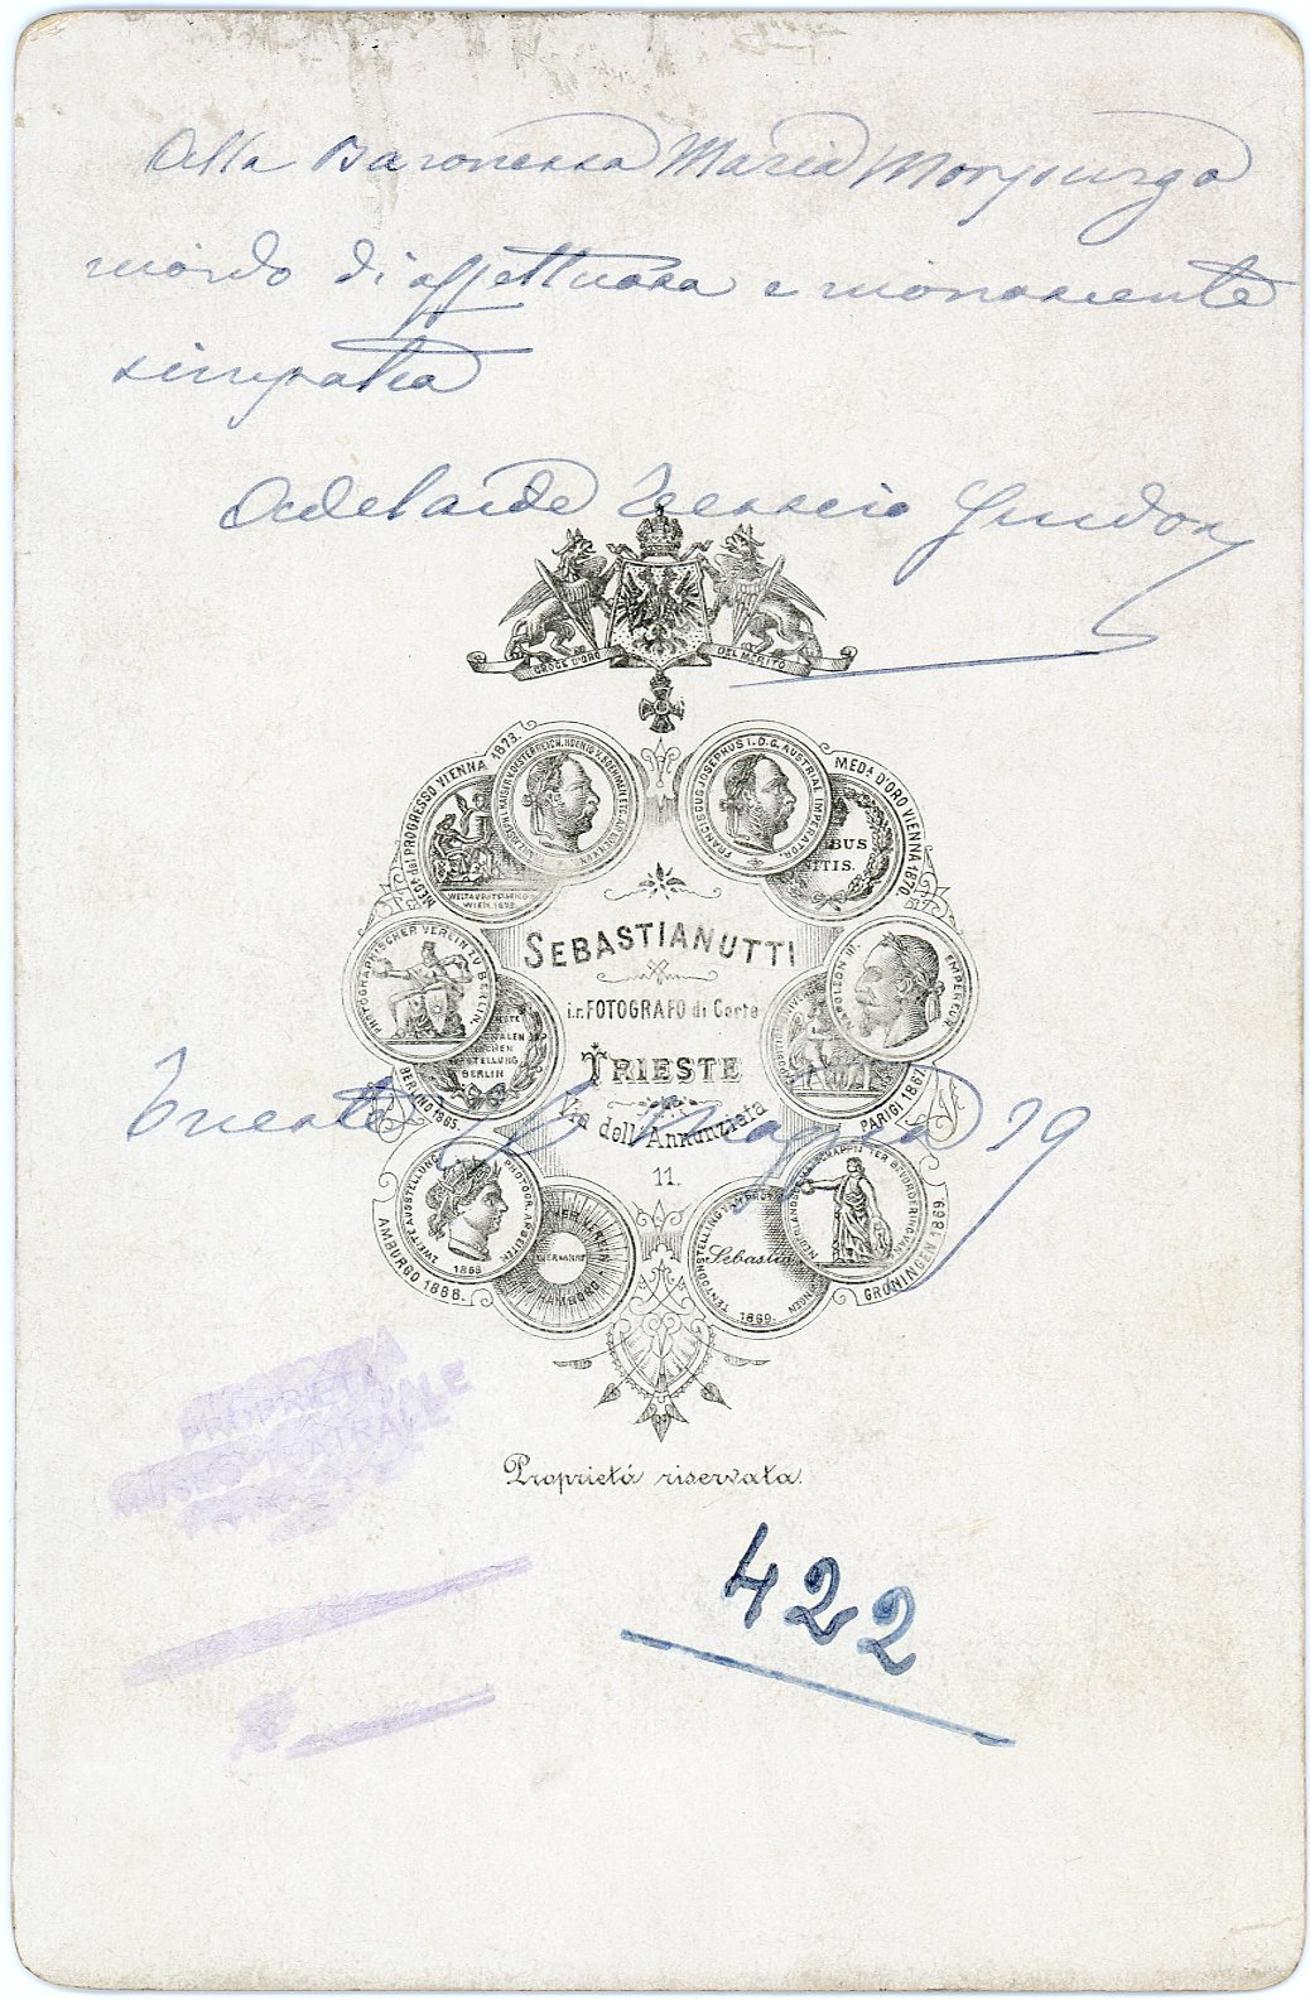 Alla Baronessa Maria Morpurgo
ricordo di affettuosa e riconoscente
simpatia
Adelaide Tessero Guidon
CROCE D'ORO DEL MERITO
MEDA. del PROGRESSO VIENNA 1873.
FRANZ JOSEPH I. KAISER V. OESTERREICH, KOENIG V. BOEHMEN ETC. AP. KOENIG V.
WELTAUSSTELLUNG
WIEN 1873
FRANCISCUS JOSEPHUS I. D. G. AUSTRIAE IMPERATOR.
MEDA. D'ORO VIENNA 1870.
BUS
ITIS.
PHOTOGRAPHISCHER VEREIN ZU BERLIN.
NALEN
CHEN
STELLUNG
BERLIN
BERLINO 1865.
NAPOLEON III. EMPEREUR
PARIGI 1867
SEBASTIANUTTI
i.r. FOTOGRAFO di Corte
TRIESTE
Via dell'Annunziata
11.
Trieste Maggio 79
ZWEITE AUSSTELLUNG PHOTOGR. ARBEITEN
1868
HER VEREIN
HAMBURG
AMBURGO 1868.
TENTOONSTELLING VAN PHOTO
Sebastia
1869.
NEDERLANDSCH TER BEVORDERING VAN
GRONINGEN 1869
PROPRIETÀ
MUSEO TEATRALE
Proprietá riservata.
422